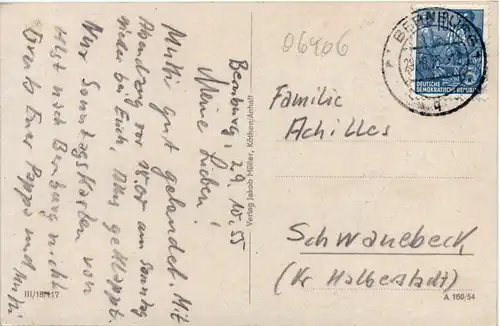 Bernburg, 29.10.55
Meine Lieben!
Mutti gut gelandet. Mit
Abendzug vor 18.00 am Sonntag
wieder bei Euch. Hat geklappt.
Nur Sonntagskarten von
Hbst nach Bernburg nicht
Grüße Euer Pappa und Mutti
III/18/117
Verlag Jakob Müller, Köthen/Anhalt
06406
BERNBURG
DEUTSCHE
DEMOKRATISCHE REPUBLIK
5
Familie
Achilles
Schwanebeck
(Kr Halberstadt)
A 160/54